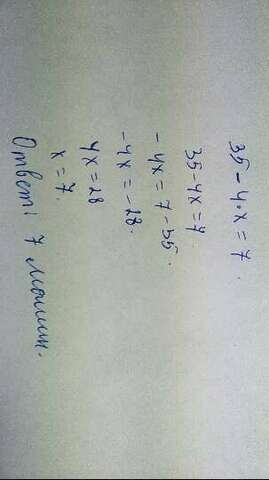 35 - 4·x = 7.
35 - 4x = 7.
- 4x = 7 - 35.
- 4x = - 28.
4x = 28
x = 7.
Ответ: 7 машин.